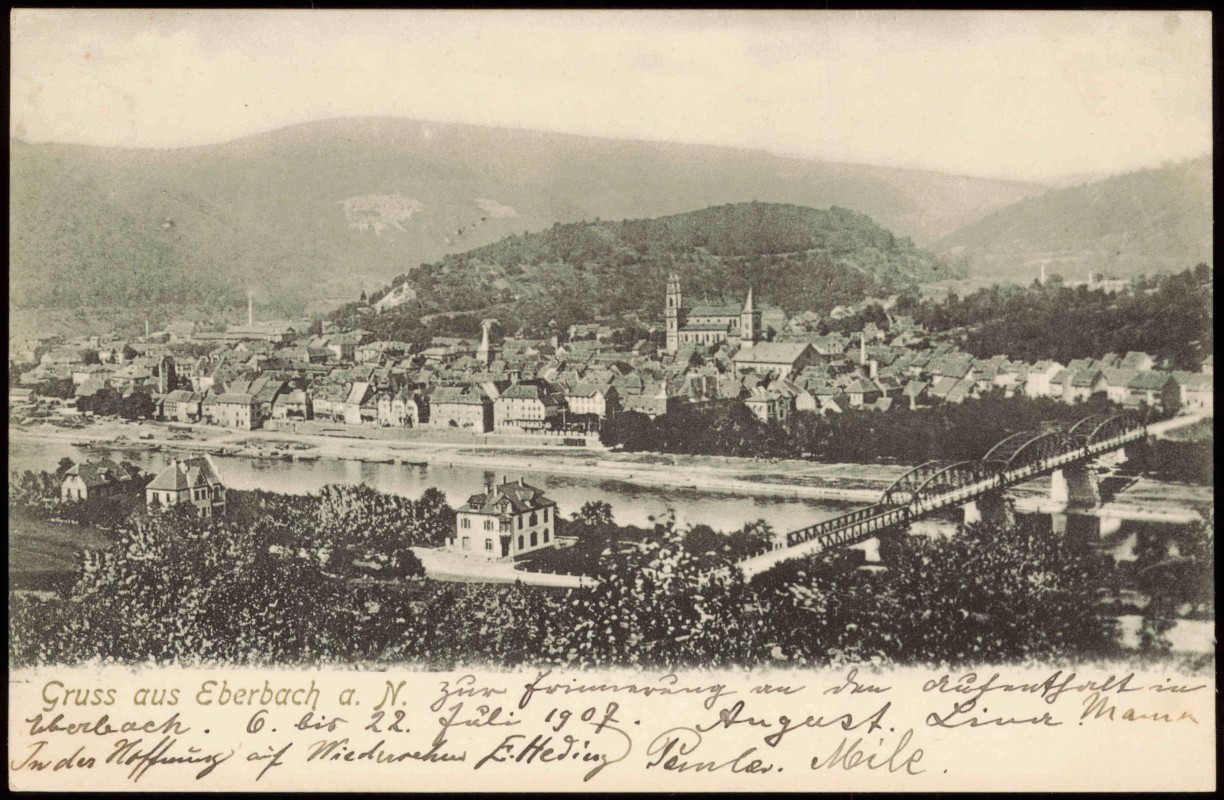 Gruss aus Eberbach a. N. zur Erinnerung an den Aufenthalt in
Eberbach. 6. bis 22. Juli 1907. August. Lina Mama
In der Hoffnung auf Wiedersehn E. Heding Mile.